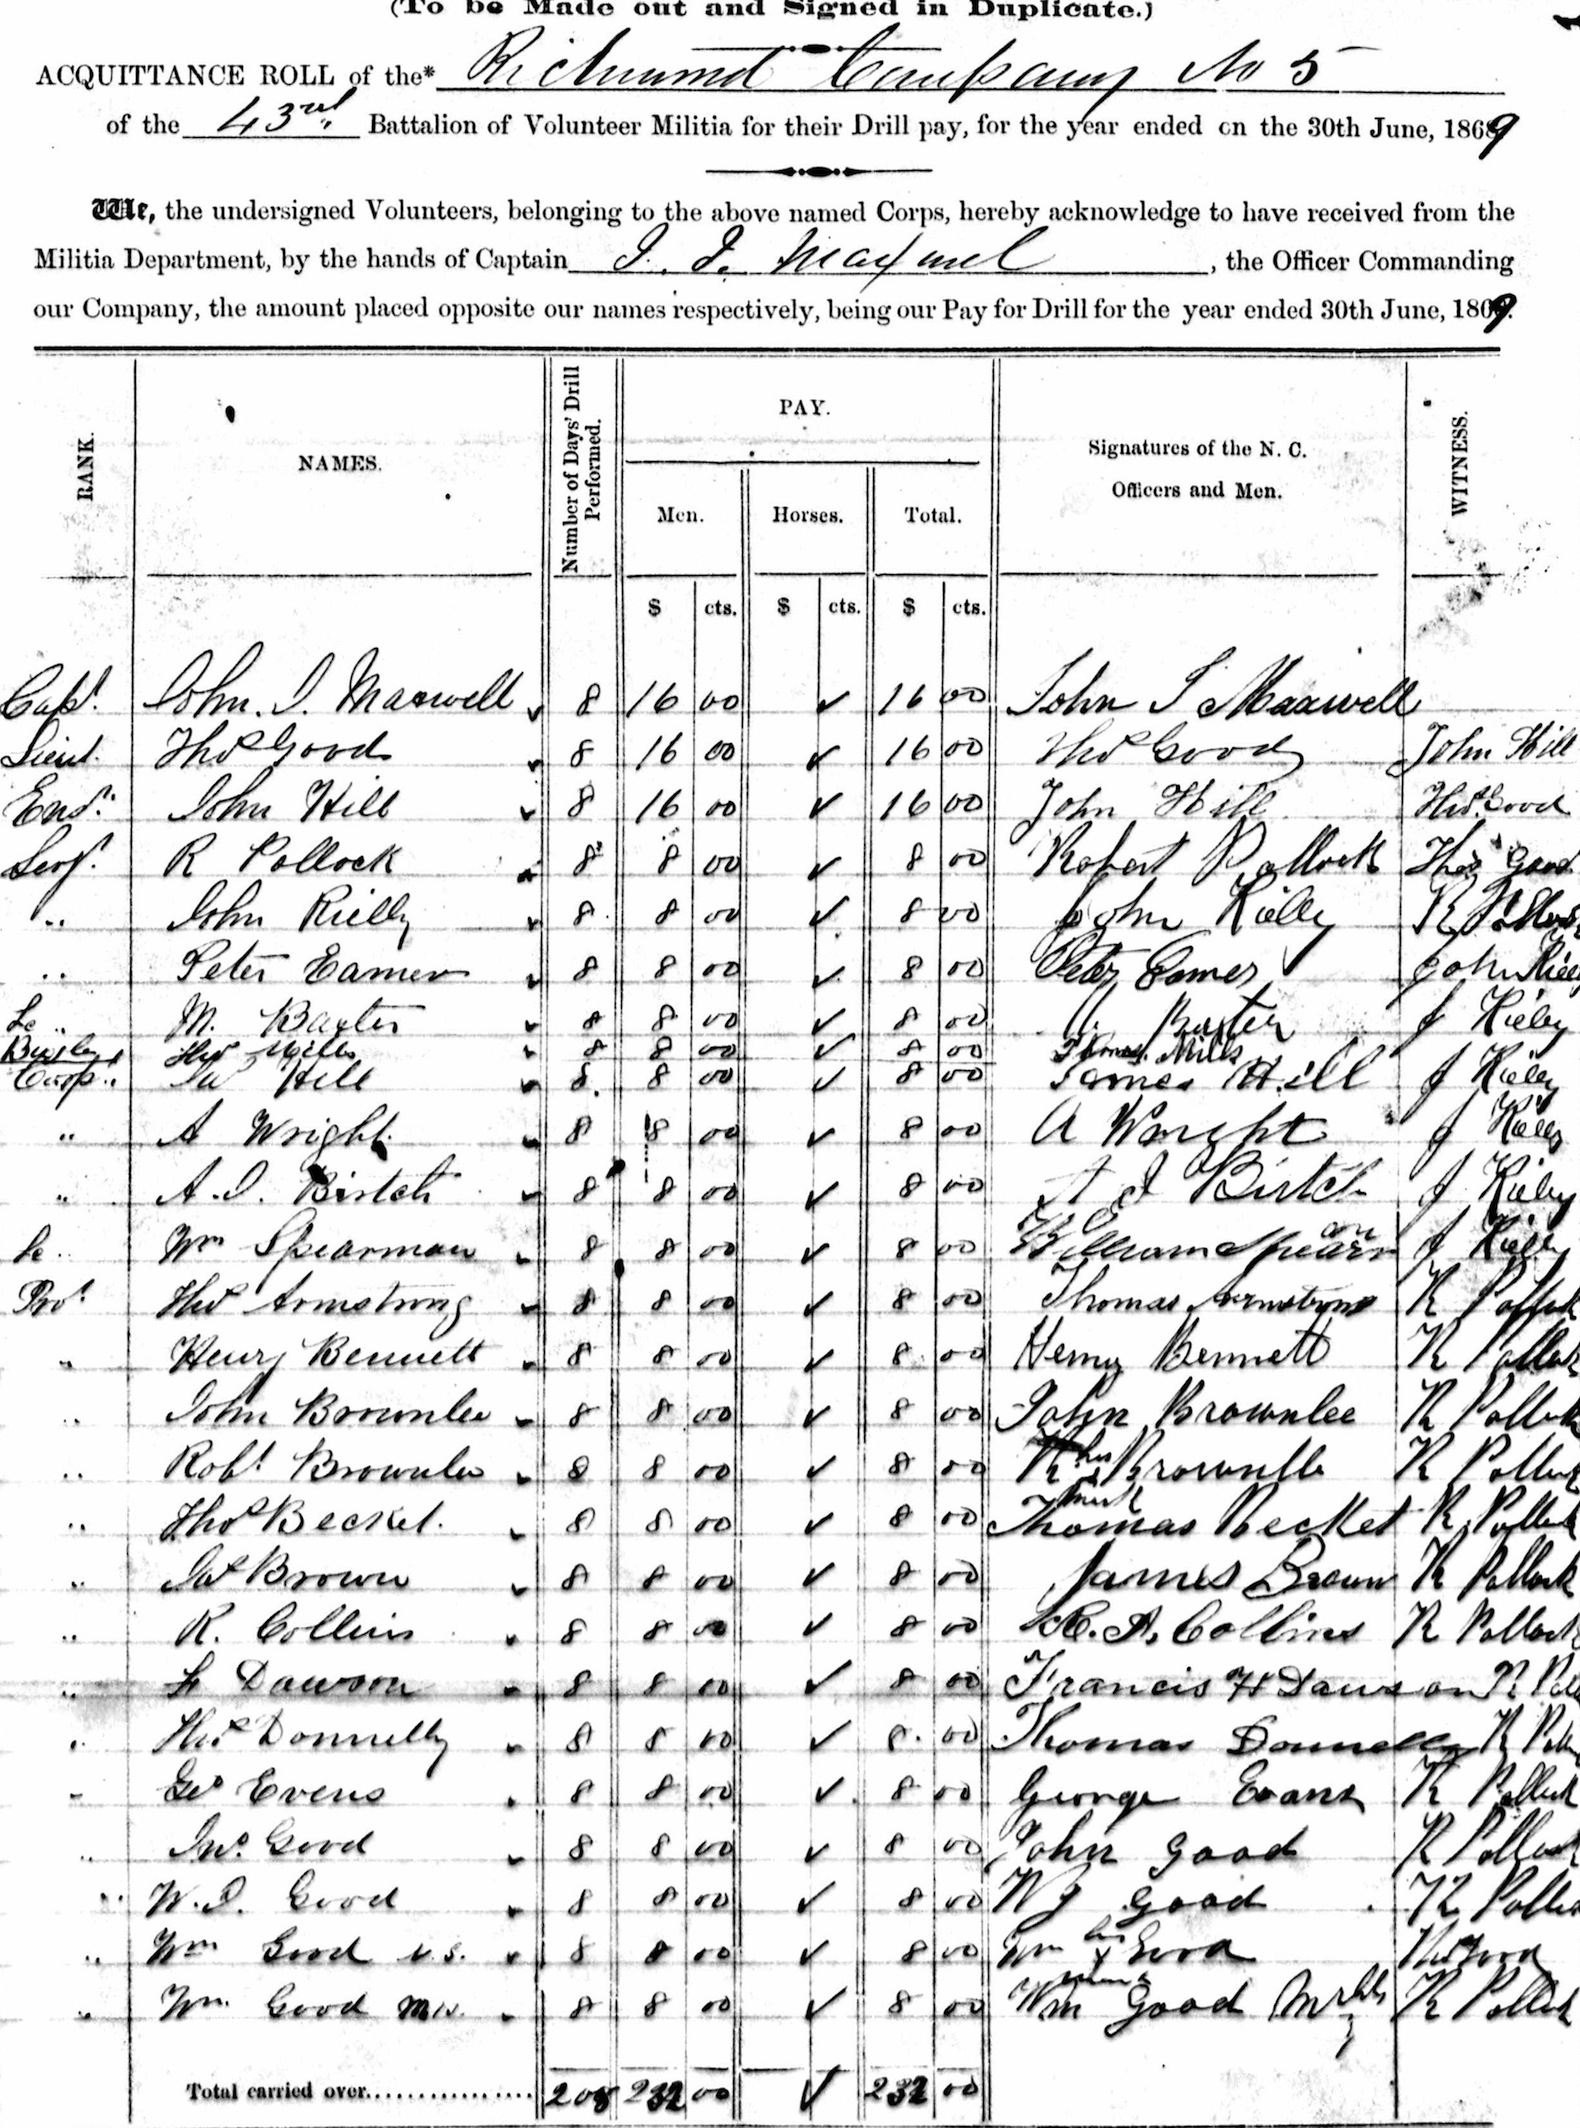 (To be Made out and Signed in Duplicate.)
ACQUITTANCE ROLL of the* Richmond Company No 5
of the 43rd Battalion of Volunteer Militia for their Drill pay, for the year ended on the 30th June, 1869
We, the undersigned Volunteers, belonging to the above named Corps, hereby acknowledge to have received from the
Militia Department, by the hands of Captain J. I. Maxwel, the Officer Commanding
our Company, the amount placed opposite our names respectively, being our Pay for Drill for the year ended 30th June, 1869.
RANK. NAMES. Number of Days' Drill Performed. PAY. Signatures of the N. C. Officers and Men. WITNESS.
Men. Horses. Total.
$ cts. $ cts. $ cts.
Capt. John. I. Maxwell 8 16 00 ✓ 16 00 John I Maxwell
Lieut. Thos Good 8 16 00 ✓ 16 00 Thos Good John Hill
Ens. John Hill 8 16 00 ✓ 16 00 John Hill Thos Good
Serg. R Pollock 8 8 00 ✓ 8 00 Robert Pollock Thos Good
" John Rielly 8 8 00 ✓ 8 00 John Rielly R Pollock
" Peter Eamer 8 8 00 ✓ 8 00 Peter Eamer John Riely
Lc " M. Baxter 8 8 00 ✓ 8 00 M Baxter J Rieley
Bugler Thos Mills 8 8 00 ✓ 8 00 Thomas Mills
Corp. Jas Hill 8 8 00 ✓ 8 00 James Hill J Rieley
" A Wright 8 8 00 ✓ 8 00 A Wright J Rieley
" A. I. Birtch 8 8 00 ✓ 8 00 A J Birtch J Rieley
Lc " Wm Spearman 8 8 00 ✓ 8 00 William Spearman J Rieley
Prvt Thos Armstrong 8 8 00 ✓ 8 00 Thomas Armstrong R Pollock
" Henry Bennett 8 8 00 ✓ 8 00 Henry Bennett R Pollock
" John Brownlee 8 8 00 ✓ 8 00 John Brownlee R Pollock
" Robt Brownlee 8 8 00 ✓ 8 00 R his x mark Brownlle R Pollock
" Thos Becket. 8 8 00 ✓ 8 00 Thomas Becket R Pollock
" Jas Brown 8 8 00 ✓ 8 00 James Brown R Pollock
" R. Collins 8 8 00 ✓ 8 00 R. A. Collins R Pollock
" F Dawson 8 8 00 ✓ 8 00 Francis H Dawson R Poll
" Thos Donnelly 8 8 00 ✓ 8. 00 Thomas Donnelly R Poll
" Geo Evens 8 8 00 ✓ 8 00 George Evans R Pollock
" Jno. Good 8 8 00 ✓ 8 00 John Good R Pollock
" W. I. Good 8 8 00 ✓ 8 00 W J Good R Pollock
" Wm Good U.S. 8 8 00 ✓ 8 00 Wm his x mark Good Thos Good
" Wm. Good 8 8 00 ✓ 8 00 Wm Good R Pollock
Total carried over 208 232 00 ✓ 232 00